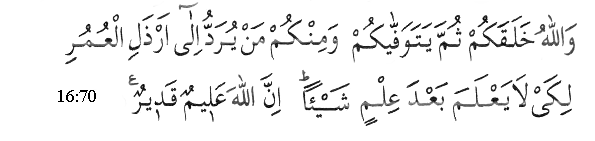 وَاللّٰهُ خَلَقَكُمْ ثُمَّ يَتَوَفّٰيكُمْ وَمِنْكُمْ مَنْ يُرَدُّ اِلٰٓى اَرْذَلِ الْعُمُرِ
لِكَيْ لَا يَعْلَمَ بَعْدَ عِلْمٍ شَيْـًٔاؕ اِنَّ اللّٰهَ عَلٖيمٌ قَدٖيرٌࣖ 16:70